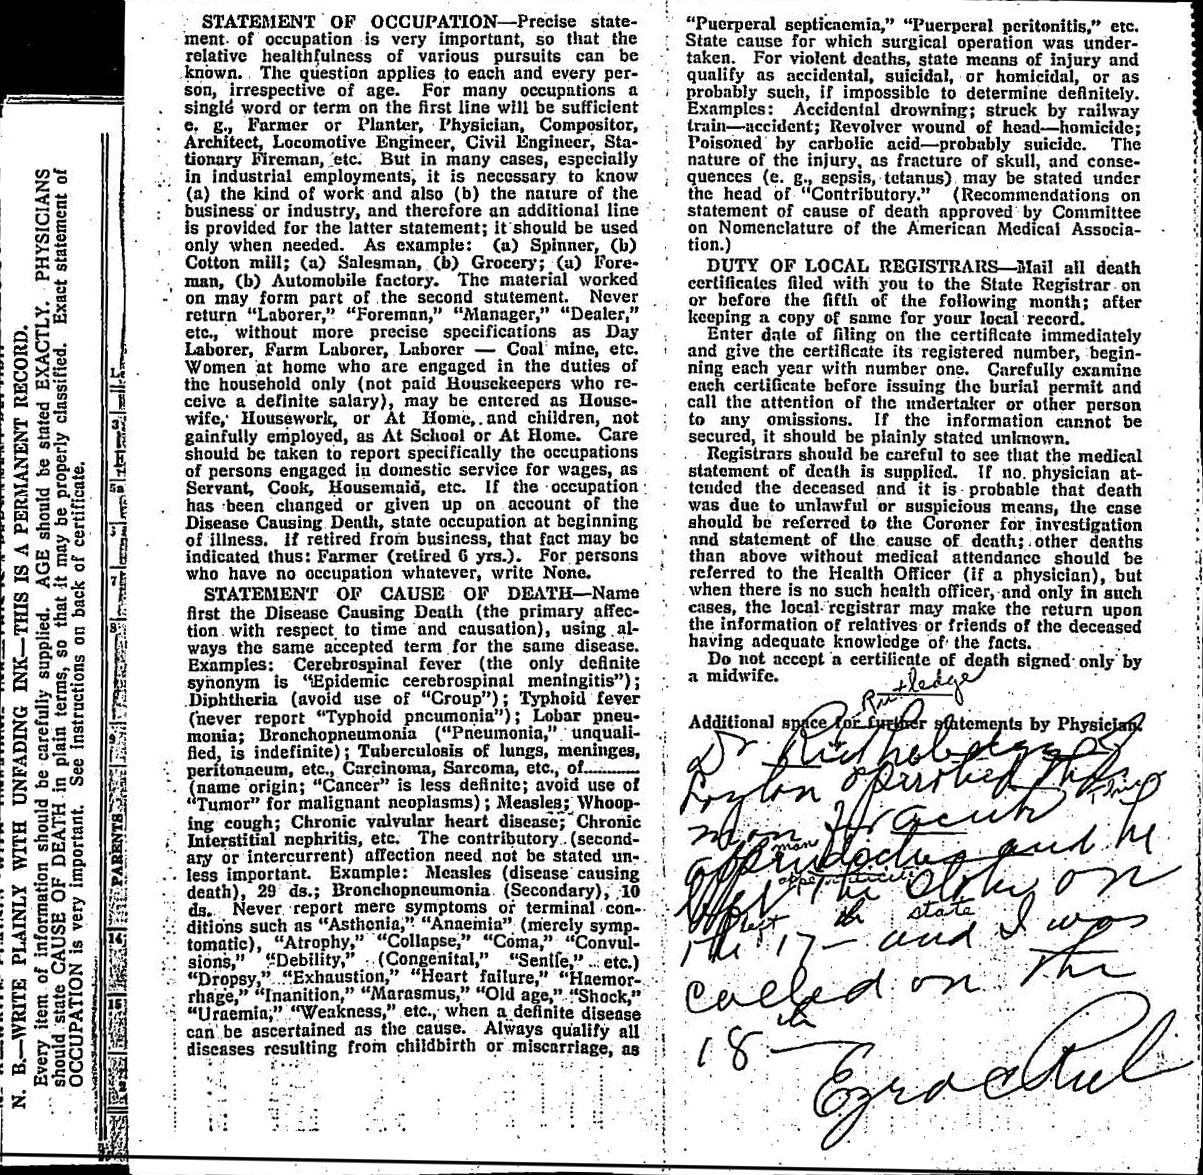 N. B.—WRITE PLAINLY WITH UNFADING INK—THIS IS A PERMANENT RECORD.
Every item of information should be carefully supplied. AGE should be stated EXACTLY. PHYSICIANS
should state CAUSE OF DEATH in plain terms, so that it may be properly classified. Exact statement of
OCCUPATION is very important. See instructions on back of certificate.
PARENTS
STATEMENT OF OCCUPATION—Precise state-
ment of occupation is very important, so that the
relative healthfulness of various pursuits can be
known. The question applies to each and every per-
son, irrespective of age. For many occupations a
single word or term on the first line will be sufficient
e. g., Farmer or Planter, Physician, Compositor,
Architect, Locomotive Engineer, Civil Engineer, Sta-
tionary Fireman, etc. But in many cases, especially
in industrial employments, it is necessary to know
(a) the kind of work and also (b) the nature of the
business or industry, and therefore an additional line
is provided for the latter statement; it should be used
only when needed. As example: (a) Spinner, (b)
Cotton mill; (a) Salesman, (b) Grocery; (a) Fore-
man, (b) Automobile factory. The material worked
on may form part of the second statement. Never
return "Laborer," "Foreman," "Manager," "Dealer,"
etc., without more precise specifications as Day
Laborer, Farm Laborer, Laborer — Coal mine, etc.
Women at home who are engaged in the duties of
the household only (not paid Housekeepers who re-
ceive a definite salary), may be entered as House-
wife, Housework, or At Home, and children, not
gainfully employed, as At School or At Home. Care
should be taken to report specifically the occupations
of persons engaged in domestic service for wages, as
Servant, Cook, Housemaid, etc. If the occupation
has been changed or given up on account of the
Disease Causing Death, state occupation at beginning
of illness. If retired from business, that fact may be
indicated thus: Farmer (retired 6 yrs.). For persons
who have no occupation whatever, write None.
STATEMENT OF CAUSE OF DEATH—Name
first the Disease Causing Death (the primary affec-
tion with respect to time and causation), using al-
ways the same accepted term for the same disease.
Examples: Cerebrospinal fever (the only definite
synonym is "Epidemic cerebrospinal meningitis");
Diphtheria (avoid use of "Croup"); Typhoid fever
(never report "Typhoid pneumonia"); Lobar pneu-
monia; Bronchopneumonia ("Pneumonia," unquali-
fied, is indefinite); Tuberculosis of lungs, meninges,
peritonaeum, etc., Carcinoma, Sarcoma, etc., of............
(name origin; "Cancer" is less definite; avoid use of
"Tumor" for malignant neoplasms); Measles; Whoop-
ing cough; Chronic valvular heart disease; Chronic
Interstitial nephritis, etc. The contributory (second-
ary or intercurrent) affection need not be stated un-
less important. Example: Measles (disease causing
death), 29 ds.; Bronchopneumonia (Secondary), 10
ds. Never report mere symptoms or terminal con-
ditions such as "Asthenia," "Anaemia" (merely symp-
tomatic), "Atrophy," "Collapse," "Coma," "Convul-
sions," "Debility," (Congenital," "Senile," etc.)
"Dropsy," "Exhaustion," "Heart failure," "Haemor-
rhage," "Inanition," "Marasmus," "Old age," "Shock,"
"Uraemia," "Weakness," etc., when a definite disease
can be ascertained as the cause. Always qualify all
diseases resulting from childbirth or miscarriage, as
"Puerperal septicaemia," "Puerperal peritonitis," etc.
State cause for which surgical operation was under-
taken. For violent deaths, state means of injury and
qualify as accidental, suicidal, or homicidal, or as
probably such, if impossible to determine definitely.
Examples: Accidental drowning; struck by railway
train—accident; Revolver wound of head—homicide;
Poisoned by carbolic acid—probably suicide. The
nature of the injury, as fracture of skull, and conse-
quences (e. g., sepsis, tetanus) may be stated under
the head of "Contributory." (Recommendations on
statement of cause of death approved by Committee
on Nomenclature of the American Medical Associa-
tion.)
DUTY OF LOCAL REGISTRARS—Mail all death
certificates filed with you to the State Registrar on
or before the fifth of the following month; after
keeping a copy of same for your local record.
Enter date of filing on the certificate immediately
and give the certificate its registered number, begin-
ning each year with number one. Carefully examine
each certificate before issuing the burial permit and
call the attention of the undertaker or other person
to any omissions. If the information cannot be
secured, it should be plainly stated unknown.
Registrars should be careful to see that the medical
statement of death is supplied. If no physician at-
tended the deceased and it is probable that death
was due to unlawful or suspicious means, the case
should be referred to the Coroner for investigation
and statement of the cause of death; other deaths
than above without medical attendance should be
referred to the Health Officer (if a physician), but
when there is no such health officer, and only in such
cases, the local registrar may make the return upon
the information of relatives or friends of the deceased
having adequate knowledge of the facts.
Do not accept a certificate of death signed only by
a midwife.
Rutledge
Additional space for further statements by Physician.
Dr. of
man for acute
man
and he
appendicitis
the on
state
the 17 - and I was
called on the
18th
Ezra